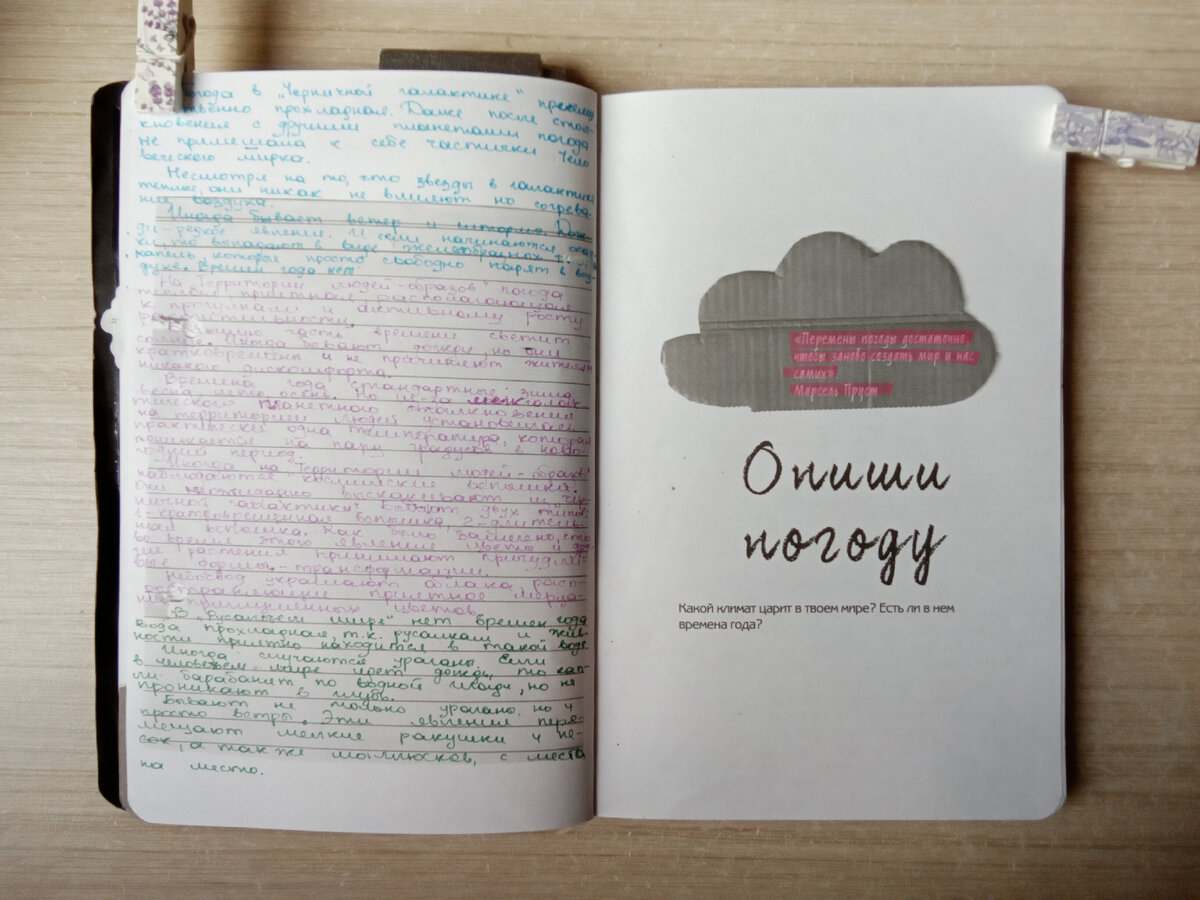 Погода в „Черничной галактике" преиму
ственно прохладная. Даже после стол-
кновения с другими планетами погода
не примешала к себе частички чело
веческого мирка.
Несмотря на то, что звезды в галактике
теплые, они никак не влияют на согрева-
ние воздуха.
Иногда бывает ветер и штормы. Дож-
ди - редкое явление. И если начинаются осад
ки, то выпадают в виде желеобразных
капель, которые просто свободно парят в воз-
духе. Времен года нет
На территории людей-образов погода
теплая, приятная, располагающая
к прогулкам и активному росту
растительности.
Большую часть времени светит
солнце. Иногда бывают дожди, но они
кратковременны и не причиняют жителям
никакого дискомфорта.
Времена года стандартные: зима,
весна, лето, осень. Но из-за
планетного столкновения
на территории людей установилась
практически одна температура, которая
понижается на пару градусов в ново-
годний период.
Иногда на территории людей-образов
наблюдаются космические вспышки.
Они неожиданно выскакивают из чер-
ничной галактики. Бывают двух типов:
1-кратковременная вспышка, 2-длитель-
ная вспышка. Как было замечено, что
во время этого явления цветы и дру-
гие растения принимают причудли-
вые формы - трансформации.
Небосвод украшают облака, расп-
ространяющие приятное мерца-
ние приглушенных цветов.
В „Русалочьем мире" нет времен года
Вода прохладная, т.к. русалкам и жив-
ности приятно находится в такой воде.
Иногда случаются ураганы. Если
в человечьем мире идет дождь, то кап-
ли барабанят по водной глади, но не
проникают в глубь.
Бывают не только ураганы, но и
просто ветры. Эти явления пере-
мещают мелкие ракушки и пе-
сок, а так же моллюсков, с места
на место.
«Перемены погоды достаточно,
чтобы заново создать мир и нас
самих».
Марсель Пруст
Опиши
погоду
Какой климат царит в твоем мире? Есть ли в нем
времена года?